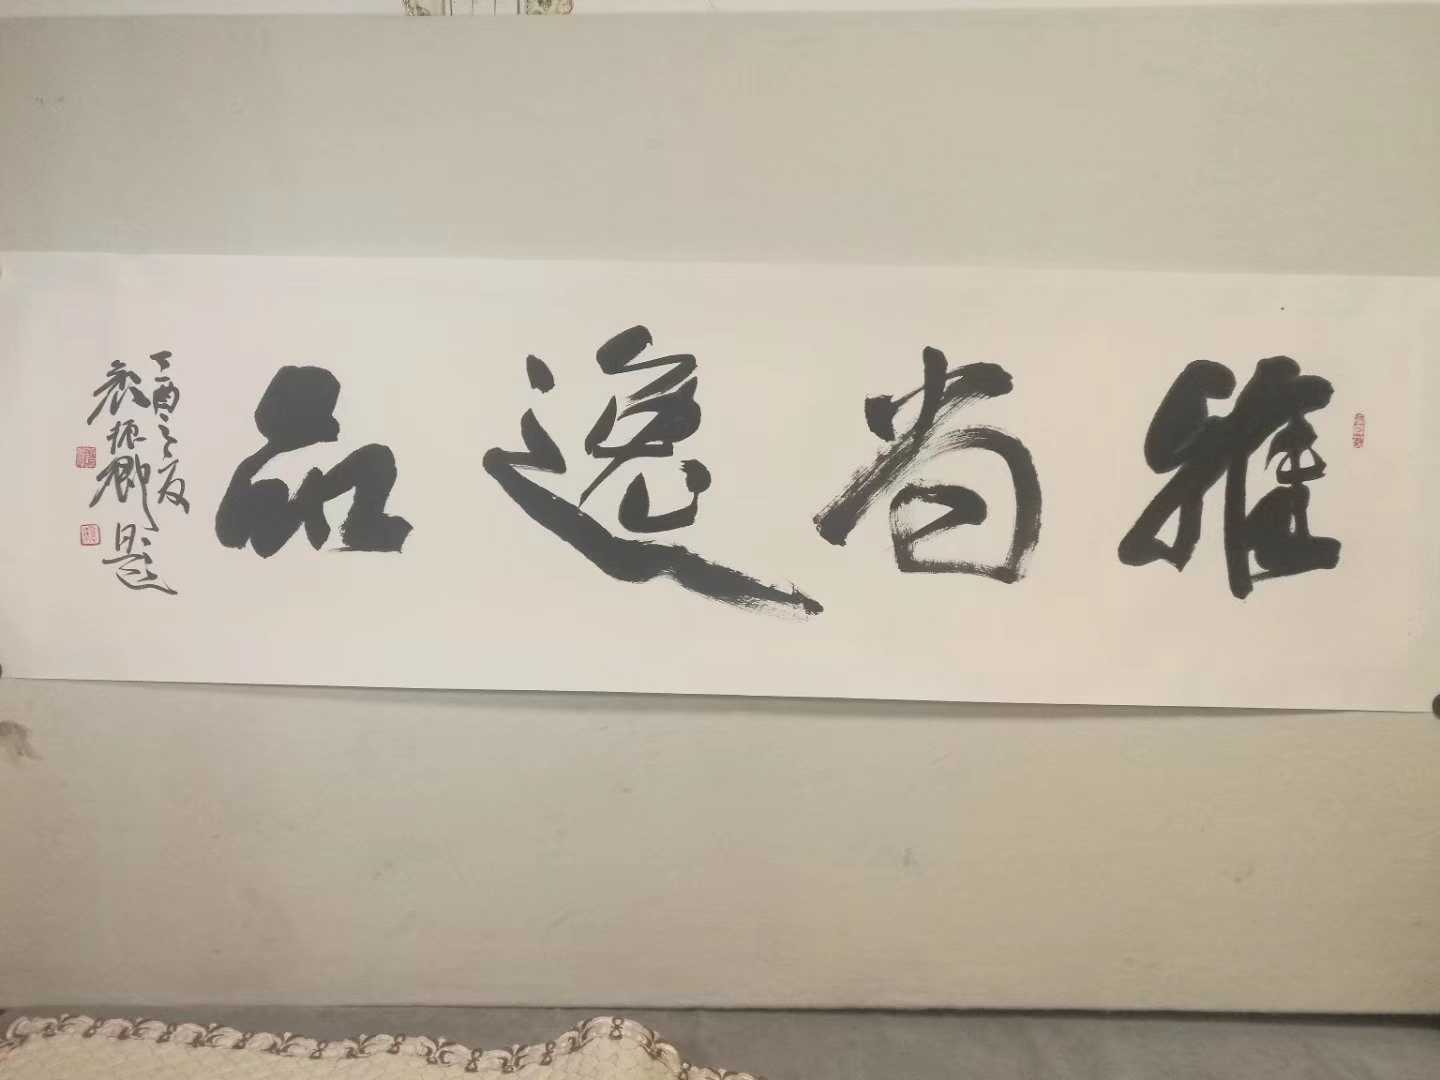 雅尚逸品
丁酉之夏
振卿题